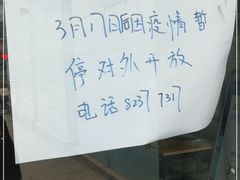 3月17日因疫情暂
停对外开放
电话8237 7317